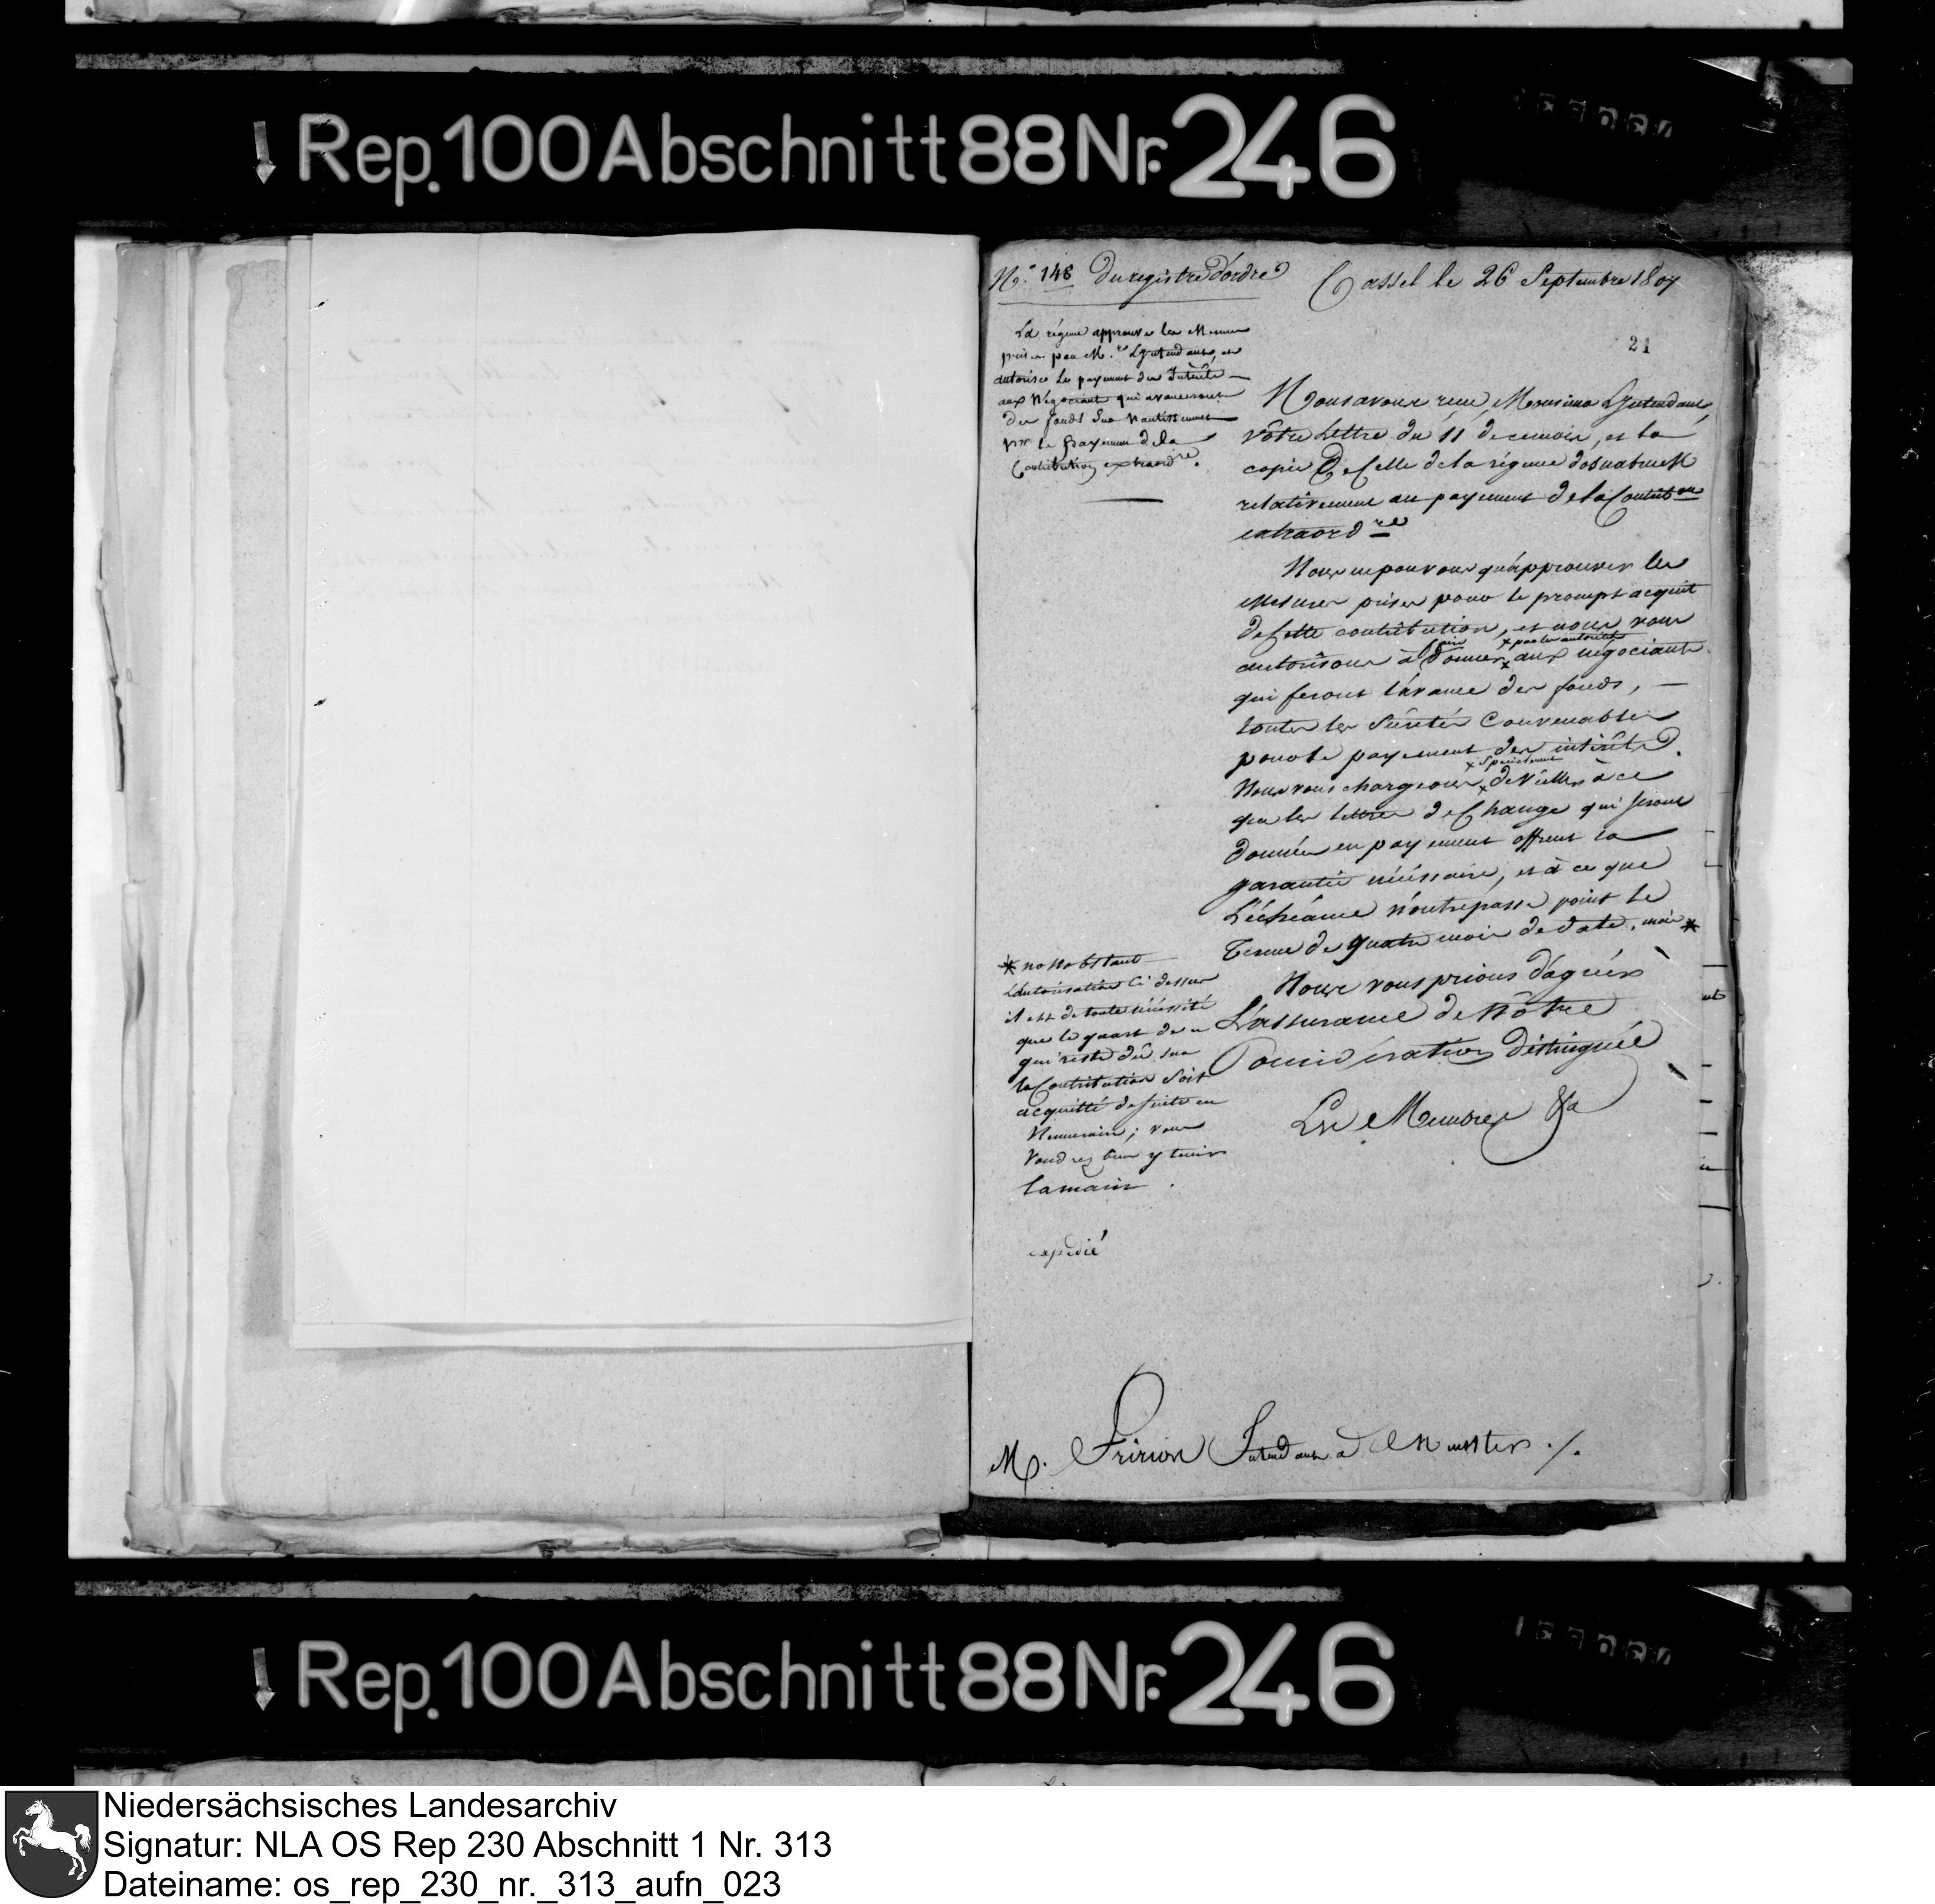 Rep. 100 Abschnitt 88 Nr. 246
N.° 148 du registre d'ordre
Cassel le 26 Septembre 1807
21
La régence approuve les Mesures
prises par M.r L'Intendant, et
autorise le payement des Intérêts
aux Négociants qui avanceront
des fonds sur nantissement
pr. le payement de la
Contribution extraordre.
Nous avons reçu, Monsieur L'Intendant,
vôtre Lettre du 11 de ce mois, et la
copie de Celle de la régence d'osnabruck
relativement au payement de la Contribon
extraordre
Nous ne pouvons qu'approuver les
Mesures prises pour le prompt acquit
de Cette contribution, et nous vous
faire × par les autorités
autorisons à donner × aux négociants
qui feront l'avance des fonds, —
toutes les Sûretés Convenables
pour le payement des intérêts.
× Spécialement
Nous vous chargeons × de veiller à ce
que les lettres de Change qui seront
données en payement offrent la
garantie nécéssaire, et à ce que
L'échéance n'outrepasse point le
Terme de quatre mois de date. mais *
* nonobstant
L'autorisation Ci dessus
il est de toute nécéssité
que le quart de ce
qui reste dû sur
la Contribution Soit
acquitté de suite en
Numeraire; vous
voudrez bien y tenir
la main.
Nous vous prions d'agréer
L'assurance de Nôtre
Considération distinguée
Les Membres &a
expédié
M. Fririon Intendant à Munster ./.
Rep. 100 Abschnitt 88 Nr. 246
Niedersächsisches Landesarchiv
Signatur: NLA OS Rep 230 Abschnitt 1 Nr. 313
Dateiname: os_rep_230_nr._313_aufn_023